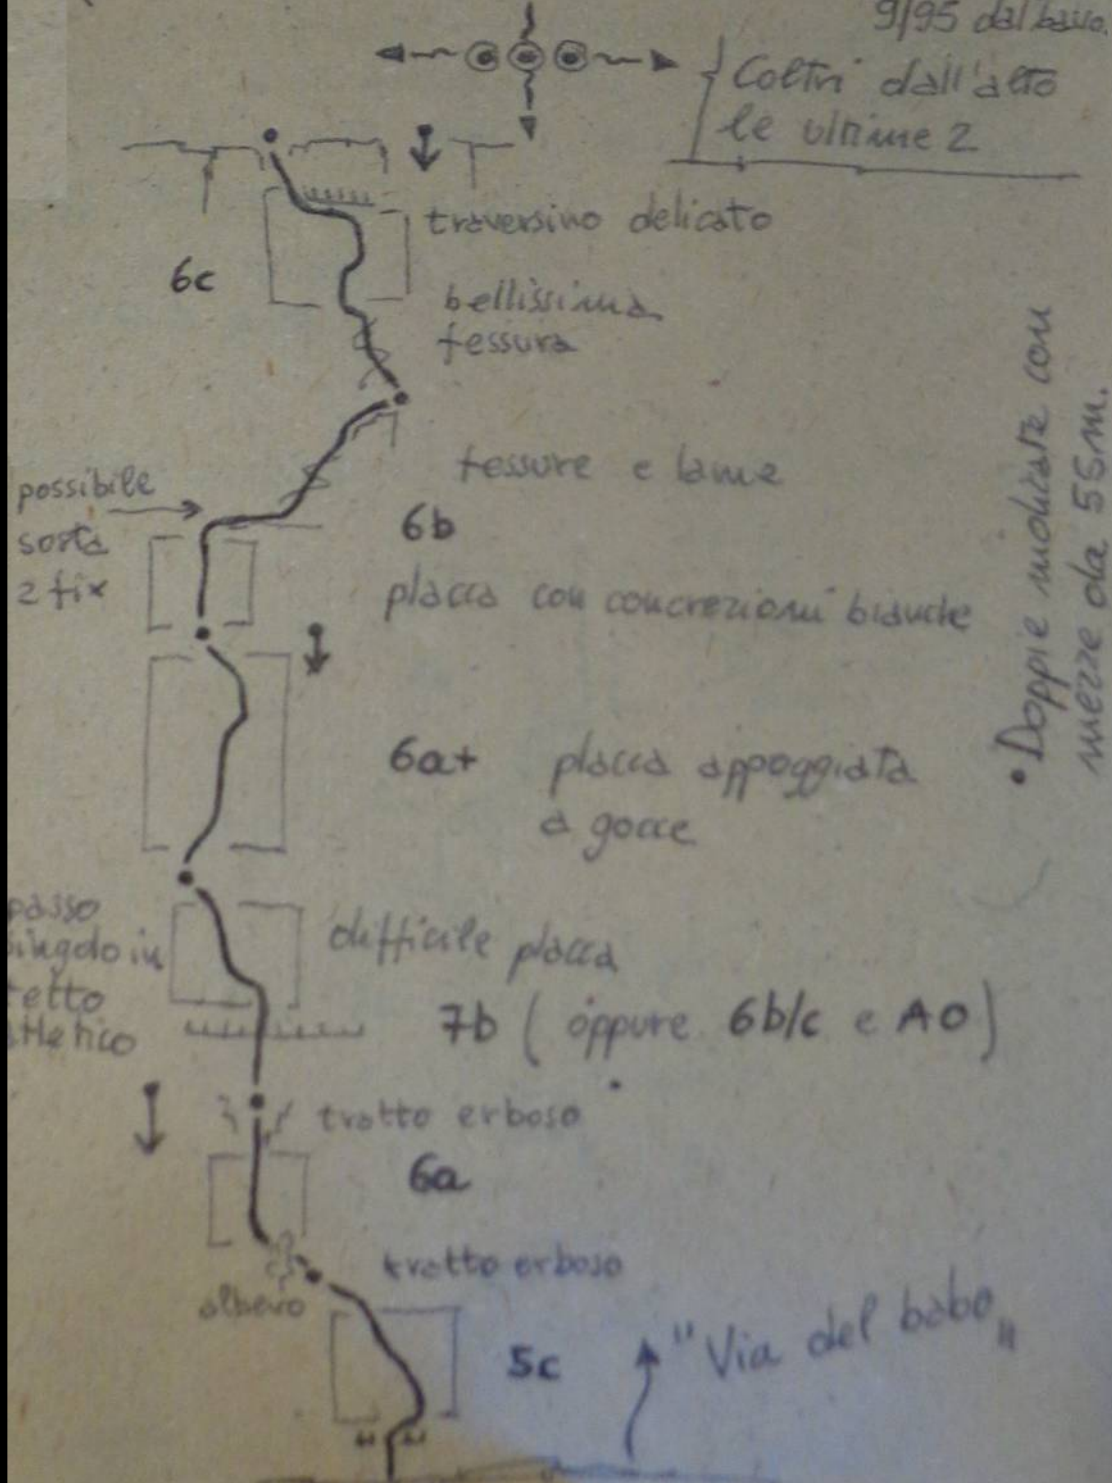 9/95 dal basso.
Coltri dall'alto
le ultime 2
traversino delicato
6c
bellissima
fessura
fessure e lame
possibile
sosta
2 fix
6b
placca con concrezioni bianche
• Doppie indicate con
mezze da 55m.
6a+ placca appoggiata
a gocce
passo
singolo in
tetto
atletico
difficile placca
7b ( oppure 6b/c e A0)
tratto erboso
6a
tratto erboso
albero
5c
"Via del babo"